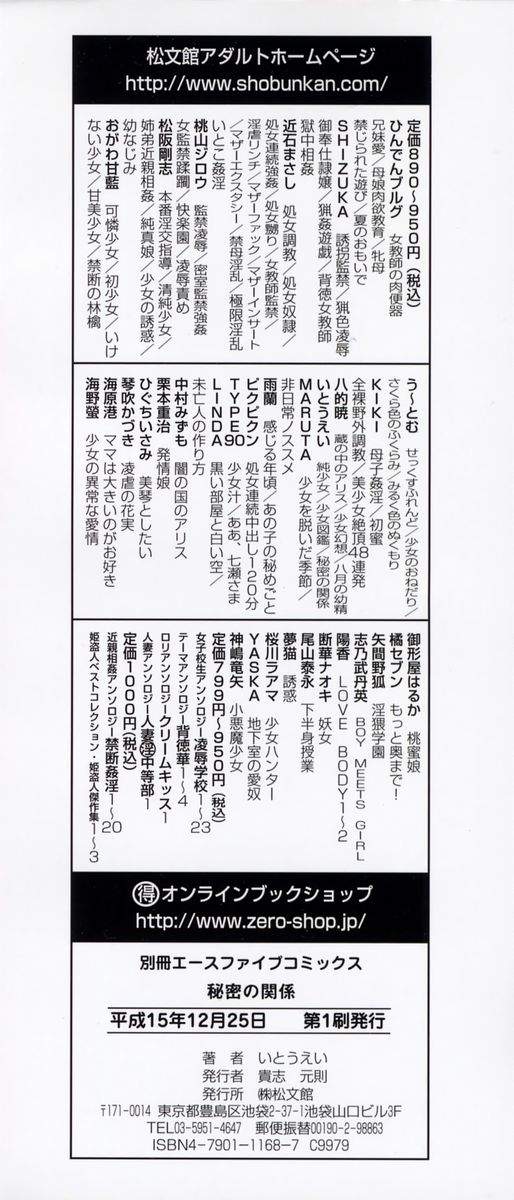 松文館アダルトホームページ
http://www.shobunkan.com/
定価890〜950円(税込)
ひんでんブルグ 女教師の肉便器
兄妹愛/母娘肉欲教育/牝母
禁じられた遊び/夏のおもいで
SHIZUKA 誘拐監禁/猟色凌辱
御奉仕隷嬢/猟姦遊戯/背徳女教師
獄中相姦
近石まさし 処女調教/処女奴隷/
処女連続強姦/処女嬲り/女教師監禁/
淫虐リンチ/マザーファック/マザーインサート
/マザーエクスタシー/禁母淫乱/極限淫乱
いとこ姦淫
桃山ジロウ 監禁凌辱/密室監禁強姦
女監禁蹂躙/快楽園/凌辱責め
松阪剛志 本番淫交指導/清純少女/
姉弟近親相姦/純真娘/少女の誘惑/
幼なじみ
おがわ甘藍 可憐少女/初少女/いけ
ない少女/甘美少女/禁断の林檎
う〜とむ せっくすふれんど/少女のおねだり/
さくら色のふくらみ/みるく色のぬくもり
KIKI 母子姦淫/初蜜
全裸野外調教/美少女絶頂48連発
八的暁 蔵の中のアリス/少女幻想/八月の幼精
いとうえい 純少女/少女図鑑/秘密の関係
MARUTA 少女を脱いだ季節/
非日常ノススメ
雨蘭 感じる年頃/あの子の秘めごと
ピクピクン 処女連続中出し120分
TYPE90 少女汁/ああ、七瀬さま
LINDA 黒い部屋と白い空/
未亡人の作り方
中村みずも 闇の国のアリス
栗本重治 発情娘
ひぐちいさみ 美琴としたい
琴吹かづき 凌虐の花実
海原港 ママは大きいのがお好き
海野螢 少女の異常な愛情
御形屋はるか 桃蜜娘
橘セブン もっと奥まで!
矢間野狐 淫猥学園
志乃武丹英 BOY MEETS GIRL
陽香 LOVE BODY1〜2
断華ナオキ 妖女
尾山泰永 下半身授業
夢猫 誘惑
桜川ラアマ 少女ハンター
YASKA 地下室の愛奴
神嶋竜矢 小悪魔少女
定価799円〜950円(税込)
女子校生アンソロジー凌辱学校1〜23
テーマアンソロジー背徳華1〜4
ロリアンソロジークリームキッス1
人妻アンソロジー人妻淫中等部1
定価1000円(税込)
近親相姦アンソロジー禁断姦淫1〜20
姫盗人ベストコレクション・姫盗人傑作集1〜3
得オンラインブックショップ
http://www.zero-shop.jp/
別冊エースファイブコミックス
秘密の関係
平成15年12月25日 第1刷発行
著 者 いとうえい
発行者 貴志 元則
発行所 ㈱松文館
〒171-0014 東京都豊島区池袋2-37-1池袋山口ビル3F
TEL03-5951-4647 郵便振替00190-2-98863
ISBN4-7901-1168-7 C9979